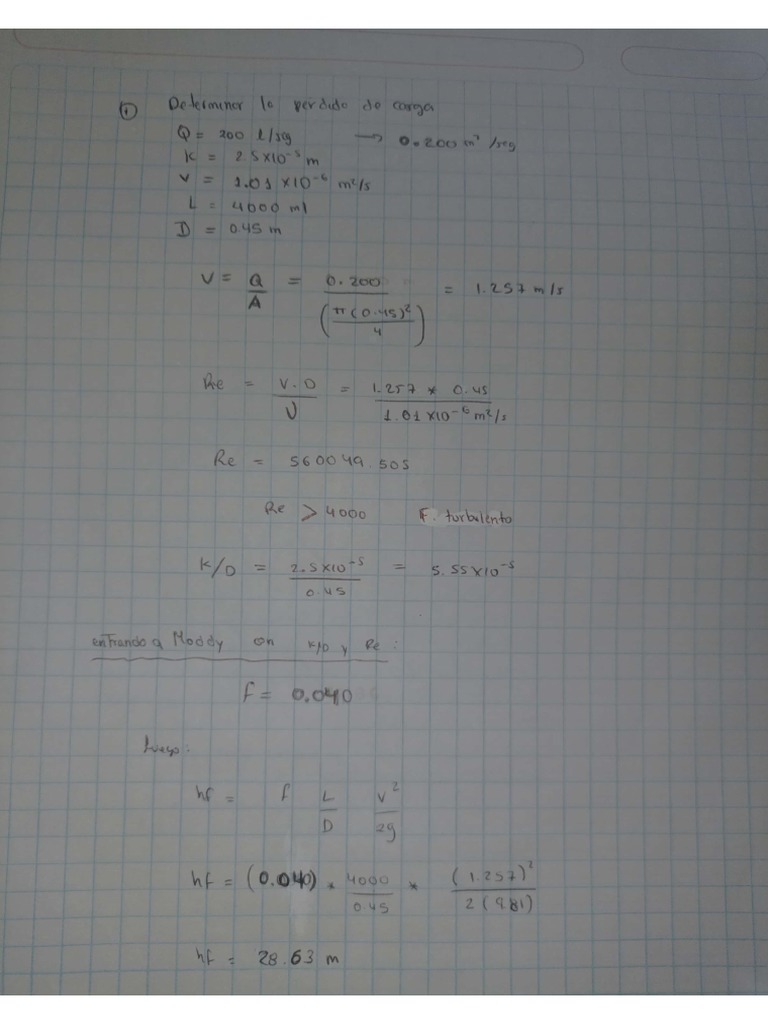 ① Determinar la perdida de carga
Q = 200 l/seg → 0.200 m³/seg
K = 2.5x10⁻⁵ m
V = 1.01 x10⁻⁶ m²/s
L = 4000 ml
D = 0.45 m
V = Q/A = 0.200/(π(0.45)²/4) = 1.257 m/s
Re = V.D/ν = 1.257 * 0.45/1.01 x10⁻⁶ m²/s
Re = 560049.505
Re > 4000 F. turbulento
K/D = 2.5x10⁻⁵/0.45 = 5.55x10⁻⁵
entrando a Moddy on K/D y Re:
f = 0.040
luego:
hf = f L/D V²/2g
hf = (0.040) * 4000/0.45 * (1.257)²/2(9.81)
hf = 28.63 m